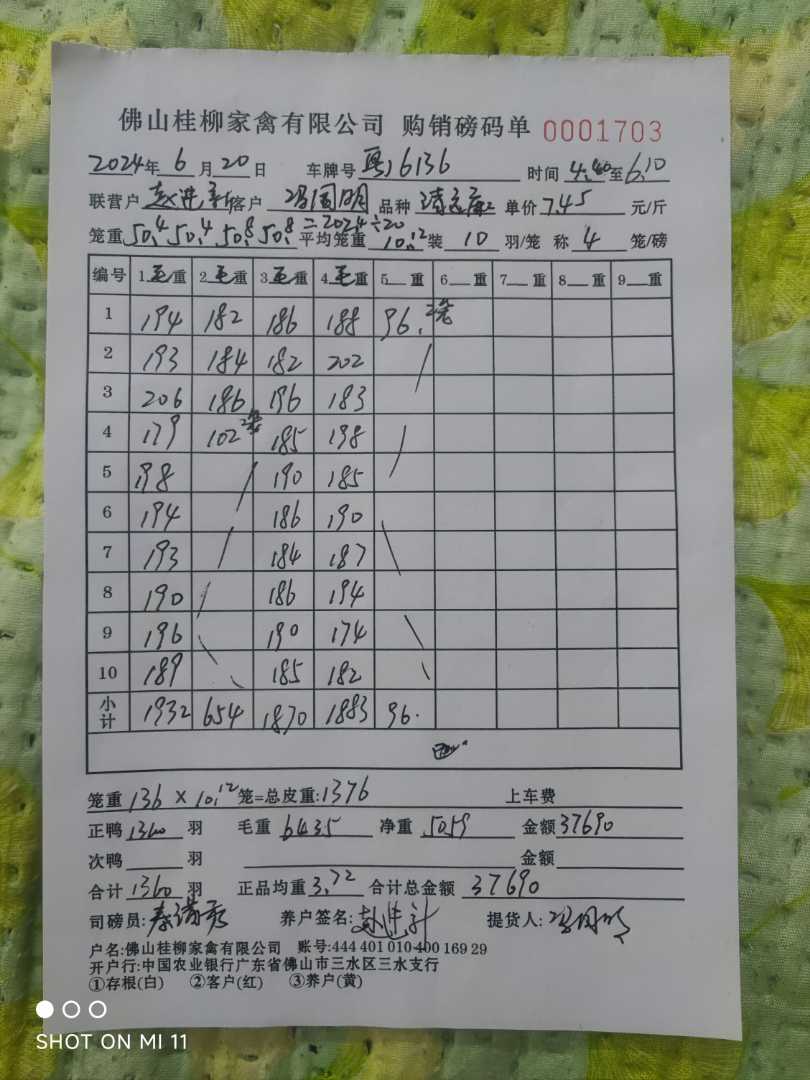 佛山桂柳家禽有限公司 购销磅码单 0001703
2024年 6月20日 车牌号 粤J6136 时间 4.40至6.10
联营户 赵进 客户 冯国明 品种 清远麻 单价 7.45 元/斤
笼重 50.4 50.4 50.8 50.8 =2024÷20 平均笼重 10.12 装 10 羽/笼 称 4 笼/磅
编号 1.毛重 2.毛重 3.毛重 4.毛重 5 重 6 重 7 重 8 重 9 重
1 194 182 186 188 96. 2笼
2 193 184 182 202
3 206 186 196 183
4 179 102 2笼 185 198
5 198 190 185
6 194 186 190
7 193 184 187
8 190 186 194
9 196 190 174
10 189 185 182
小计 1932 654 1870 1883 96.
笼重 136 × 10.12 笼=总皮重:1376 上车费
正鸭 1360 羽 毛重 6435 净重 5059 金额 37690
次鸭 羽 金额
合计 1360 羽 正品均重 3.72 合计总金额 37690
司磅员: 养户签名: 提货人: 冯国明
户名:佛山桂柳家禽有限公司 账号:444 401 010 400 169 29
开户行:中国农业银行广东省佛山市三水区三水支行
①存根(白) ②客户(红) ③养户(黄)
SHOT ON MI 11